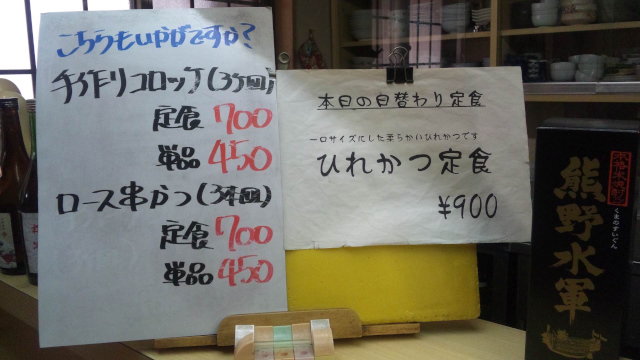 こちらもいかがですか?
手作りコロッケ(3ヶ)
定食 700
単品 450
ロース串かつ(3本)
定食 700
単品 450
本日の日替わり定食
一口サイズにした柔らかいひれかつです
ひれかつ定食
¥900
熊野水軍
くまのすいぐん